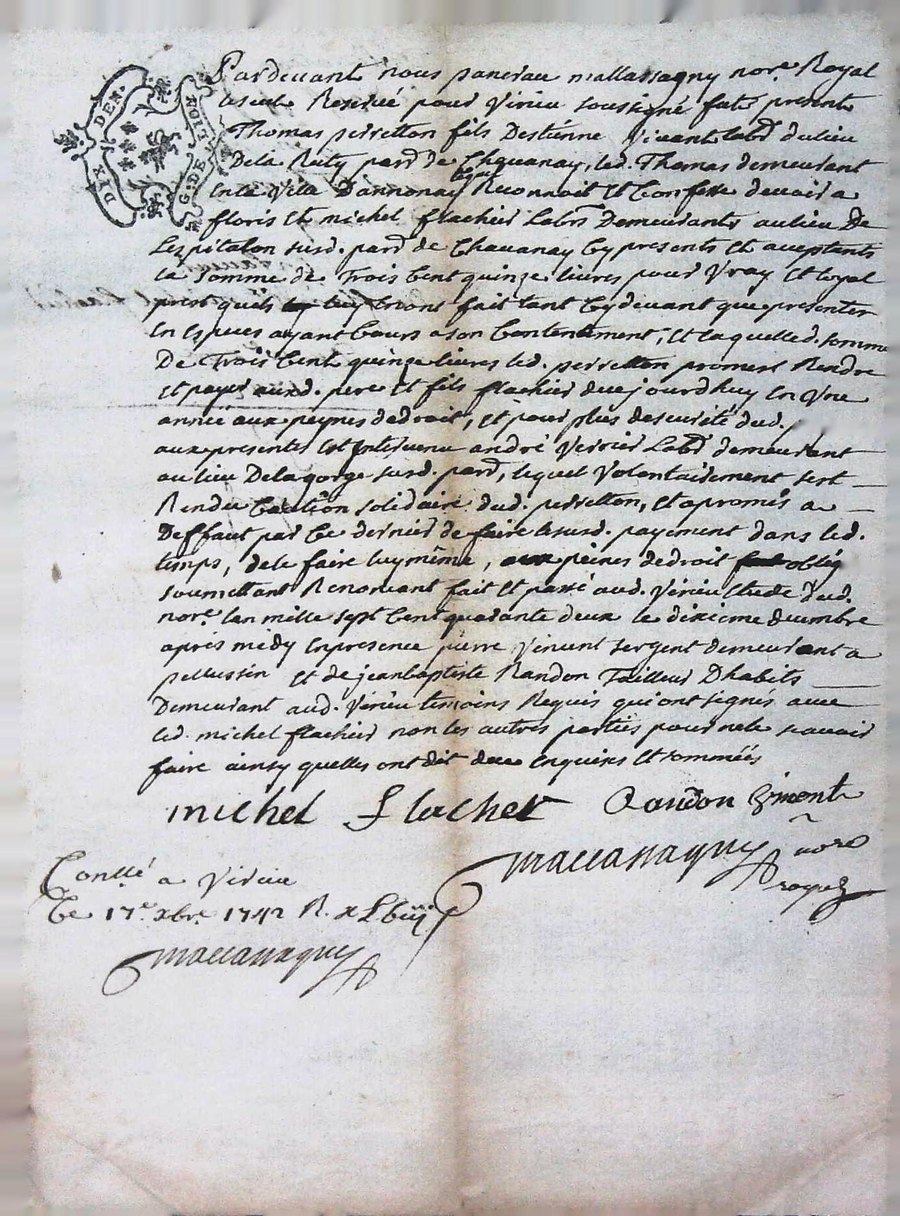 DIX DEN.
G. DE LION
Pardevant nous pancrau mallassagny nore. Royal
Reservé pour Virieu soussigné fut present
Thomas perretton fils Destienne vivant labr. du lieu
Dela Raty parr. de Chavanay, led. Thomas demeurant
en la ville Dannonay lequel Reconnoit Et Confesse devoir a
floris Et michel flachier Labrs. Demeurants au lieu De
Lespitalon susd. parr. de Chavanay Cy presents Et aceptants
la somme de Trois Cent quinze livres pour Vray Et loyal
prest quils luy ont fait tant Cydevant que presenter
En Especes ayant Cours a son Contentement, Et laquelle d. somme
De Trois Cent quinze livres led. perretton promest Rendre
Et payer auxd. pere Et fils flachier due jourdhuy En Une
année aux peynes de droit, Et pour plus de sureté dud.
aux presentes Est Intervenu andré Verrier Labr. demeurant
au lieu Dela gorge susd. parr., lequel Volontairement sest
Rendu Caution solidaire dud. perretton, Et a promis a
Deffaut par Ce dernier de faire le susd. payement dans led.
temps, de le faire luy même, aux peines de droit oblig
soumettant Renoncant fait Et passé aud. Virieu Etude dud.
nore. lan mille sept Cent quarante deux le dixieme decembre
apres midy En presence pierre Vincent sergent demeurant a
pellussin Et de jean baptiste Randon Tailleur Dhabits
Demeurant aud. Virieu temoins Requis qui ont signés avec
led. michel flachier non les autres parties pour ne le scavoir
faire ainsy quelles ont dit de ce Enquises Et sommées
michel flacher Randon
mallassagny nore
Conllé a Virieu
Ce 17e. xbre. 1742 R.
mallassagny